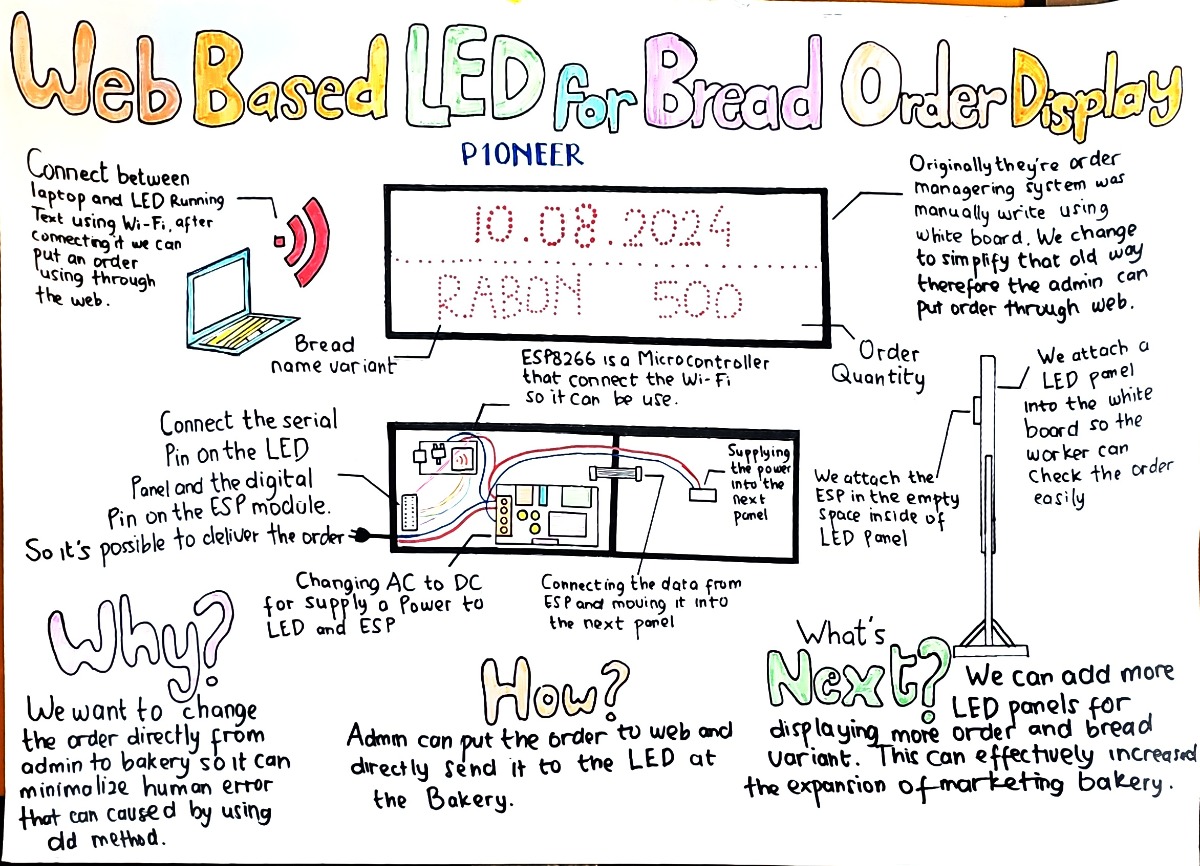 Web Based LED for Bread Order Display
P1ONEER
Connect between
laptop and LED Running
Text using Wi-Fi, after
connecting it we can
put an order
using through
the web.
10.08.2024
RABON 500
Originally they're order
managering system was
manually write using
white board. We change
to simplify that old way
therefore the admin can
put order through web.
Bread
name variant
Order
Quantity
ESP8266 is a Microcontroller
that connect the Wi-Fi
so it can be use.
We attach a
LED panel
into the white
board so the
worker can
check the order
easily
Connect the serial
Pin on the LED
Panel and the digital
Pin on the ESP module.
So it's possible to deliver the order
Supplying
the power
into the
next
panel
We attach the
ESP in the empty
space inside of
LED panel
Changing AC to DC
for supply a Power to
LED and ESP
Connecting the data from
ESP and moving it into
the next panel
Why?
We want to change
the order directly from
admin to bakery so it can
minimalize human error
that can caused by using
old method.
How?
Admin can put the order to web and
directly send it to the LED at
the Bakery.
What's
Next?
We can add more
LED panels for
displaying more order and bread
variant. This can effectively increased
the expansion of marketing bakery.